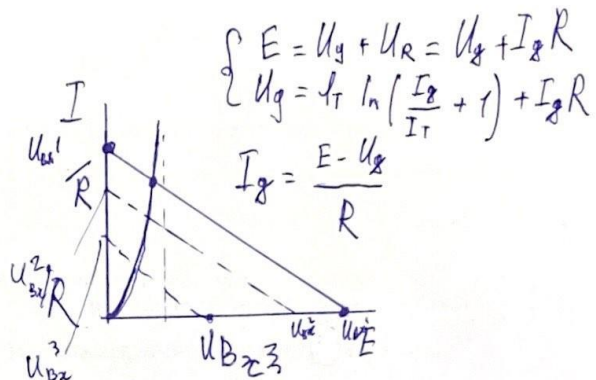 E = Uд + UR = Uд + Iд R
Uд = φT ln ( Iд / IT + 1 ) + Iд R
Iд = E - Uд / R
I
Uвх1
/R
Uвх2/R
Uвх3
Uвх3
Uвх2
Uвх1
E